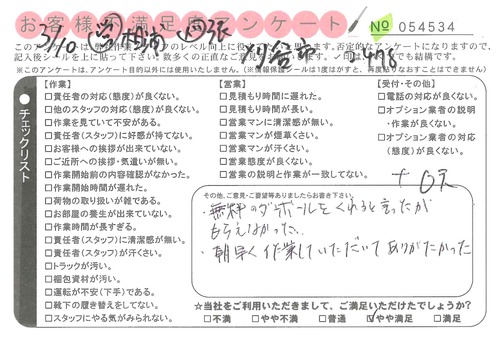 お客様満足度アンケート
№ 054534
3/10
刈谷市
2498
このアンケートは、
否定的なアンケートになりますので、
記入後シールを上に貼って下さい!
印は何個でも結構です。
※このアンケートは、アンケート目的以外には使用いたしません。(※情報保護シールは1度はがすと、再度貼りなおすことはできません)
チェックリスト
【作業】
□責任者の対応(態度)が良くない。
□他のスタッフの対応(態度)が良くない。
□作業を見ていて不安がある。
□責任者(スタッフ)に好感が持てない。
□お客様への挨拶が出来ていない。
□ご近所への挨拶・気遣いが無い。
□作業開始前の内容確認がなかった。
□作業開始時間が遅れた。
□荷物の取り扱いが雑である。
□お部屋の養生が出来ていない。
□作業時間が長すぎる。
□責任者(スタッフ)に清潔感が無い。
□責任者(スタッフ)が汗くさい。
□トラックが汚い。
□梱包資材が汚い。
□運転が不安(下手)である。
□靴下の履き替えをしてない。
□スタッフにやる気がみられない。
【営業】
□見積もり時間に遅れた。
□見積もり時間が長い。
□営業マンに清潔感が無い。
□営業マンが煙草くさい。
□営業マンが汗くさい。
□営業態度が良くない。
□営業の説明と作業が一致してない。
【受付・その他】
□電話の対応が良くない。
□オプション業者の説明
・作業が良くない。
□オプション業者の対応
(態度)が良くない。
その他、ご意見・ご要望等ありましたらお書き下さい。
・無料のダンボールをくれると言ったが
もらえなかった。
・朝早く作業していただいてありがたかった
☆当社をご利用いただきまして、ご満足いただけたでしょうか?
□不満 □やや不満 □普通 ☑やや満足 □満足